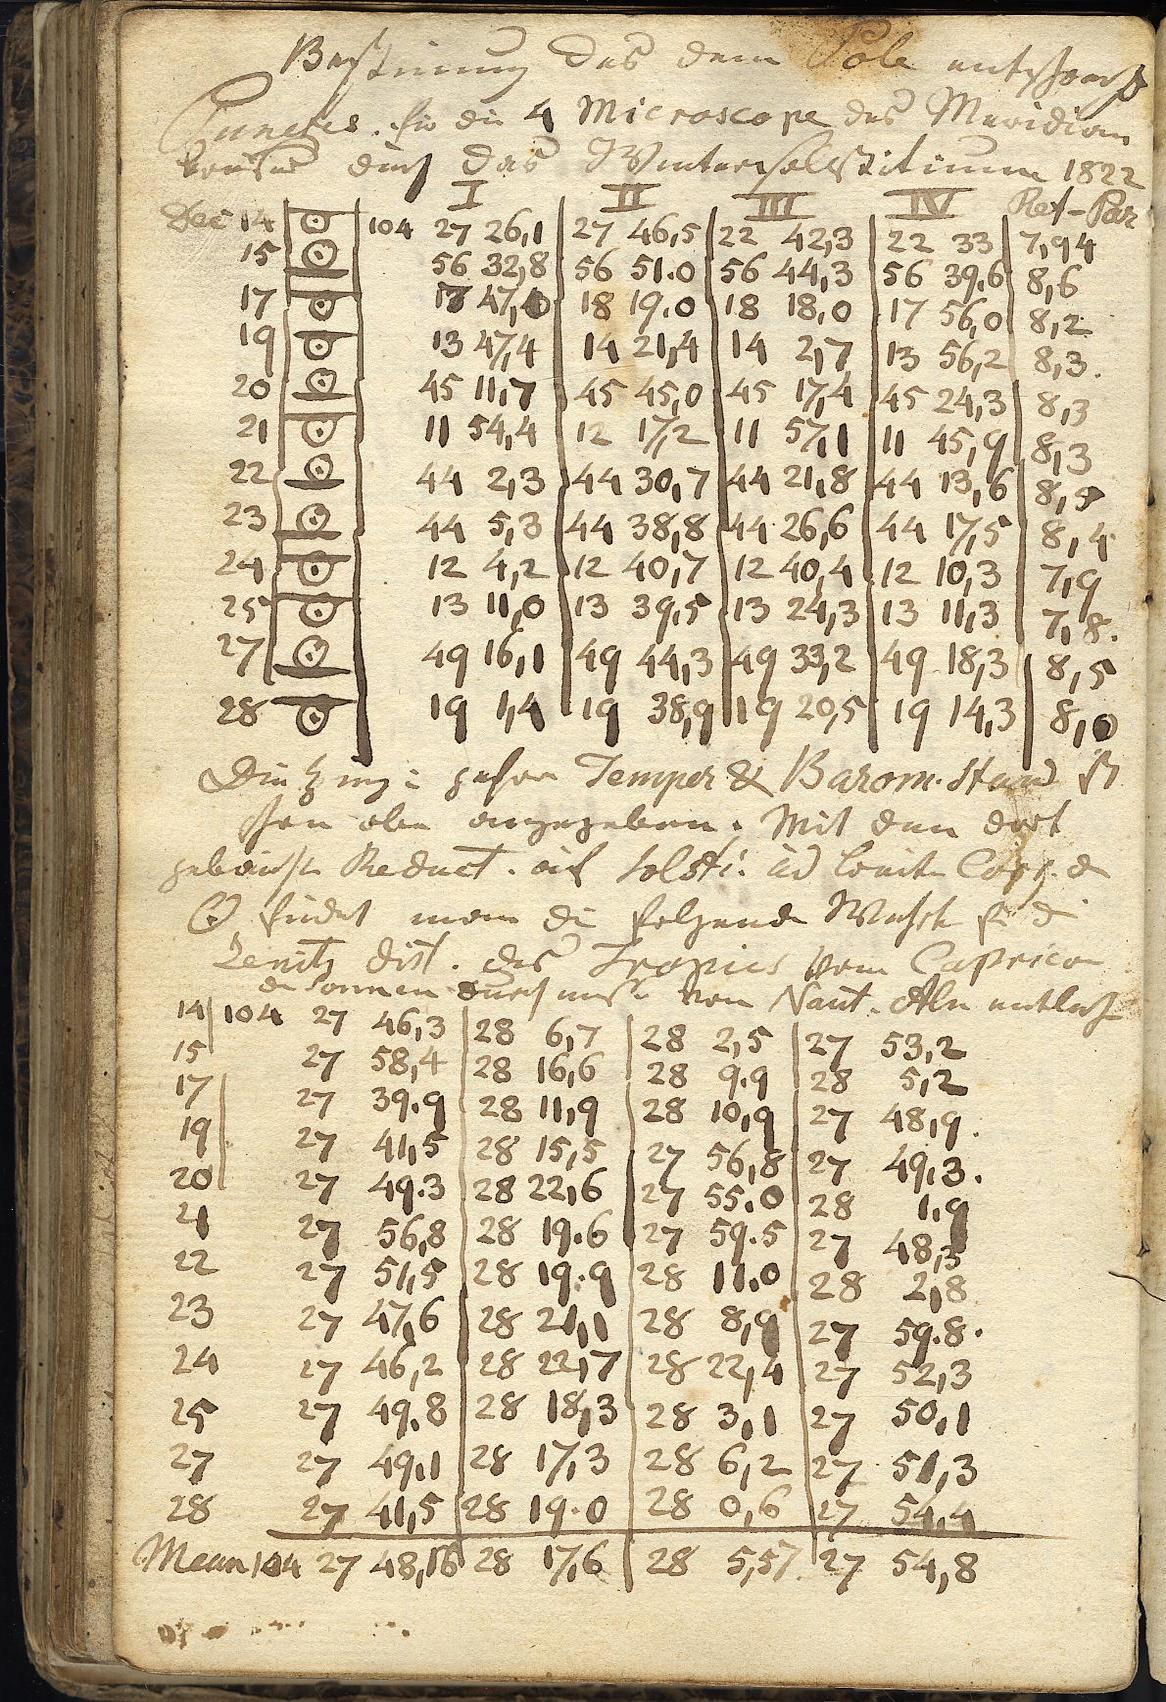 Bestimung des dem Pole entsprech
Punctes für die 4 Microscope des Meridian
kreises durch das Wintersolstitium 1822
I II III IV Ref-Par
Dec 14 ☉ 104 27 26,1 27 46,5 22 42,3 22 33 7,94
15 ☉ 56 32,8 56 51.0 56 44,3 56 39.6 8,6
17 ☉ 17 47,0 18 19.0 18 18,0 17 56,0 8,2
19 ☉ 13 47,4 14 21,4 14 2,7 13 56,2 8,3.
20 ☉ 45 11,7 45 45,0 45 17,4 45 24,3 8,3
21 ☉ 11 54,4 12 17,2 11 57,1 11 45,9 8,3
22 ☉ 44 2,3 44 30,7 44 21,8 44 13,6 8,5
23 ☉ 44 5,3 44 38,8 44 26,6 44 17,5 8,4
24 ☉ 12 4,2 12 40,7 12 40,4 12 10,3 7,9
25 ☉ 13 11,0 13 39,5 13 24,3 13 11,3 7,8.
27 ☉ 49 16,1 49 44,3 49 33,2 49 18,3 8,5
28 ☉ 19 1,4 19 38,9 19 20,5 19 14,3 8,0
Temper & Barom. Stand ist
schon oben angegeben. Mit den dort
Reduct. auf Solsti:
☉ findet man die folgende Werthe für d
Zenith dist. des Tropics vom Capricor
von Naut. Alm entlehnt
14 104 27 46,3 28 6,7 28 2,5 27 53,2
15 27 58,4 28 16,6 28 9.9 28 5,2
17 27 39.9 28 11,9 28 10,9 27 48,9.
19 27 41,5 28 15,5 27 56,8 27 49,3.
20 27 49.3 28 22,6 27 55.0 28 1.9
21 27 56,8 28 19.6 27 59.5 27 48,5
22 27 51,5 28 19.9 28 11.0 28 2,8
23 27 47,6 28 21,1 28 8,9 27 59.8.
24 27 46,2 28 22,7 28 22,4 27 52,3
25 27 49.8 28 18,3 28 3,1 27 50,1
27 27 49,1 28 17,3 28 6,2 27 51,3
28 27 41,5 28 19.0 28 0,6 27 54,4
Mean 104 27 48,16 28 17,6 28 5,57 27 54,8